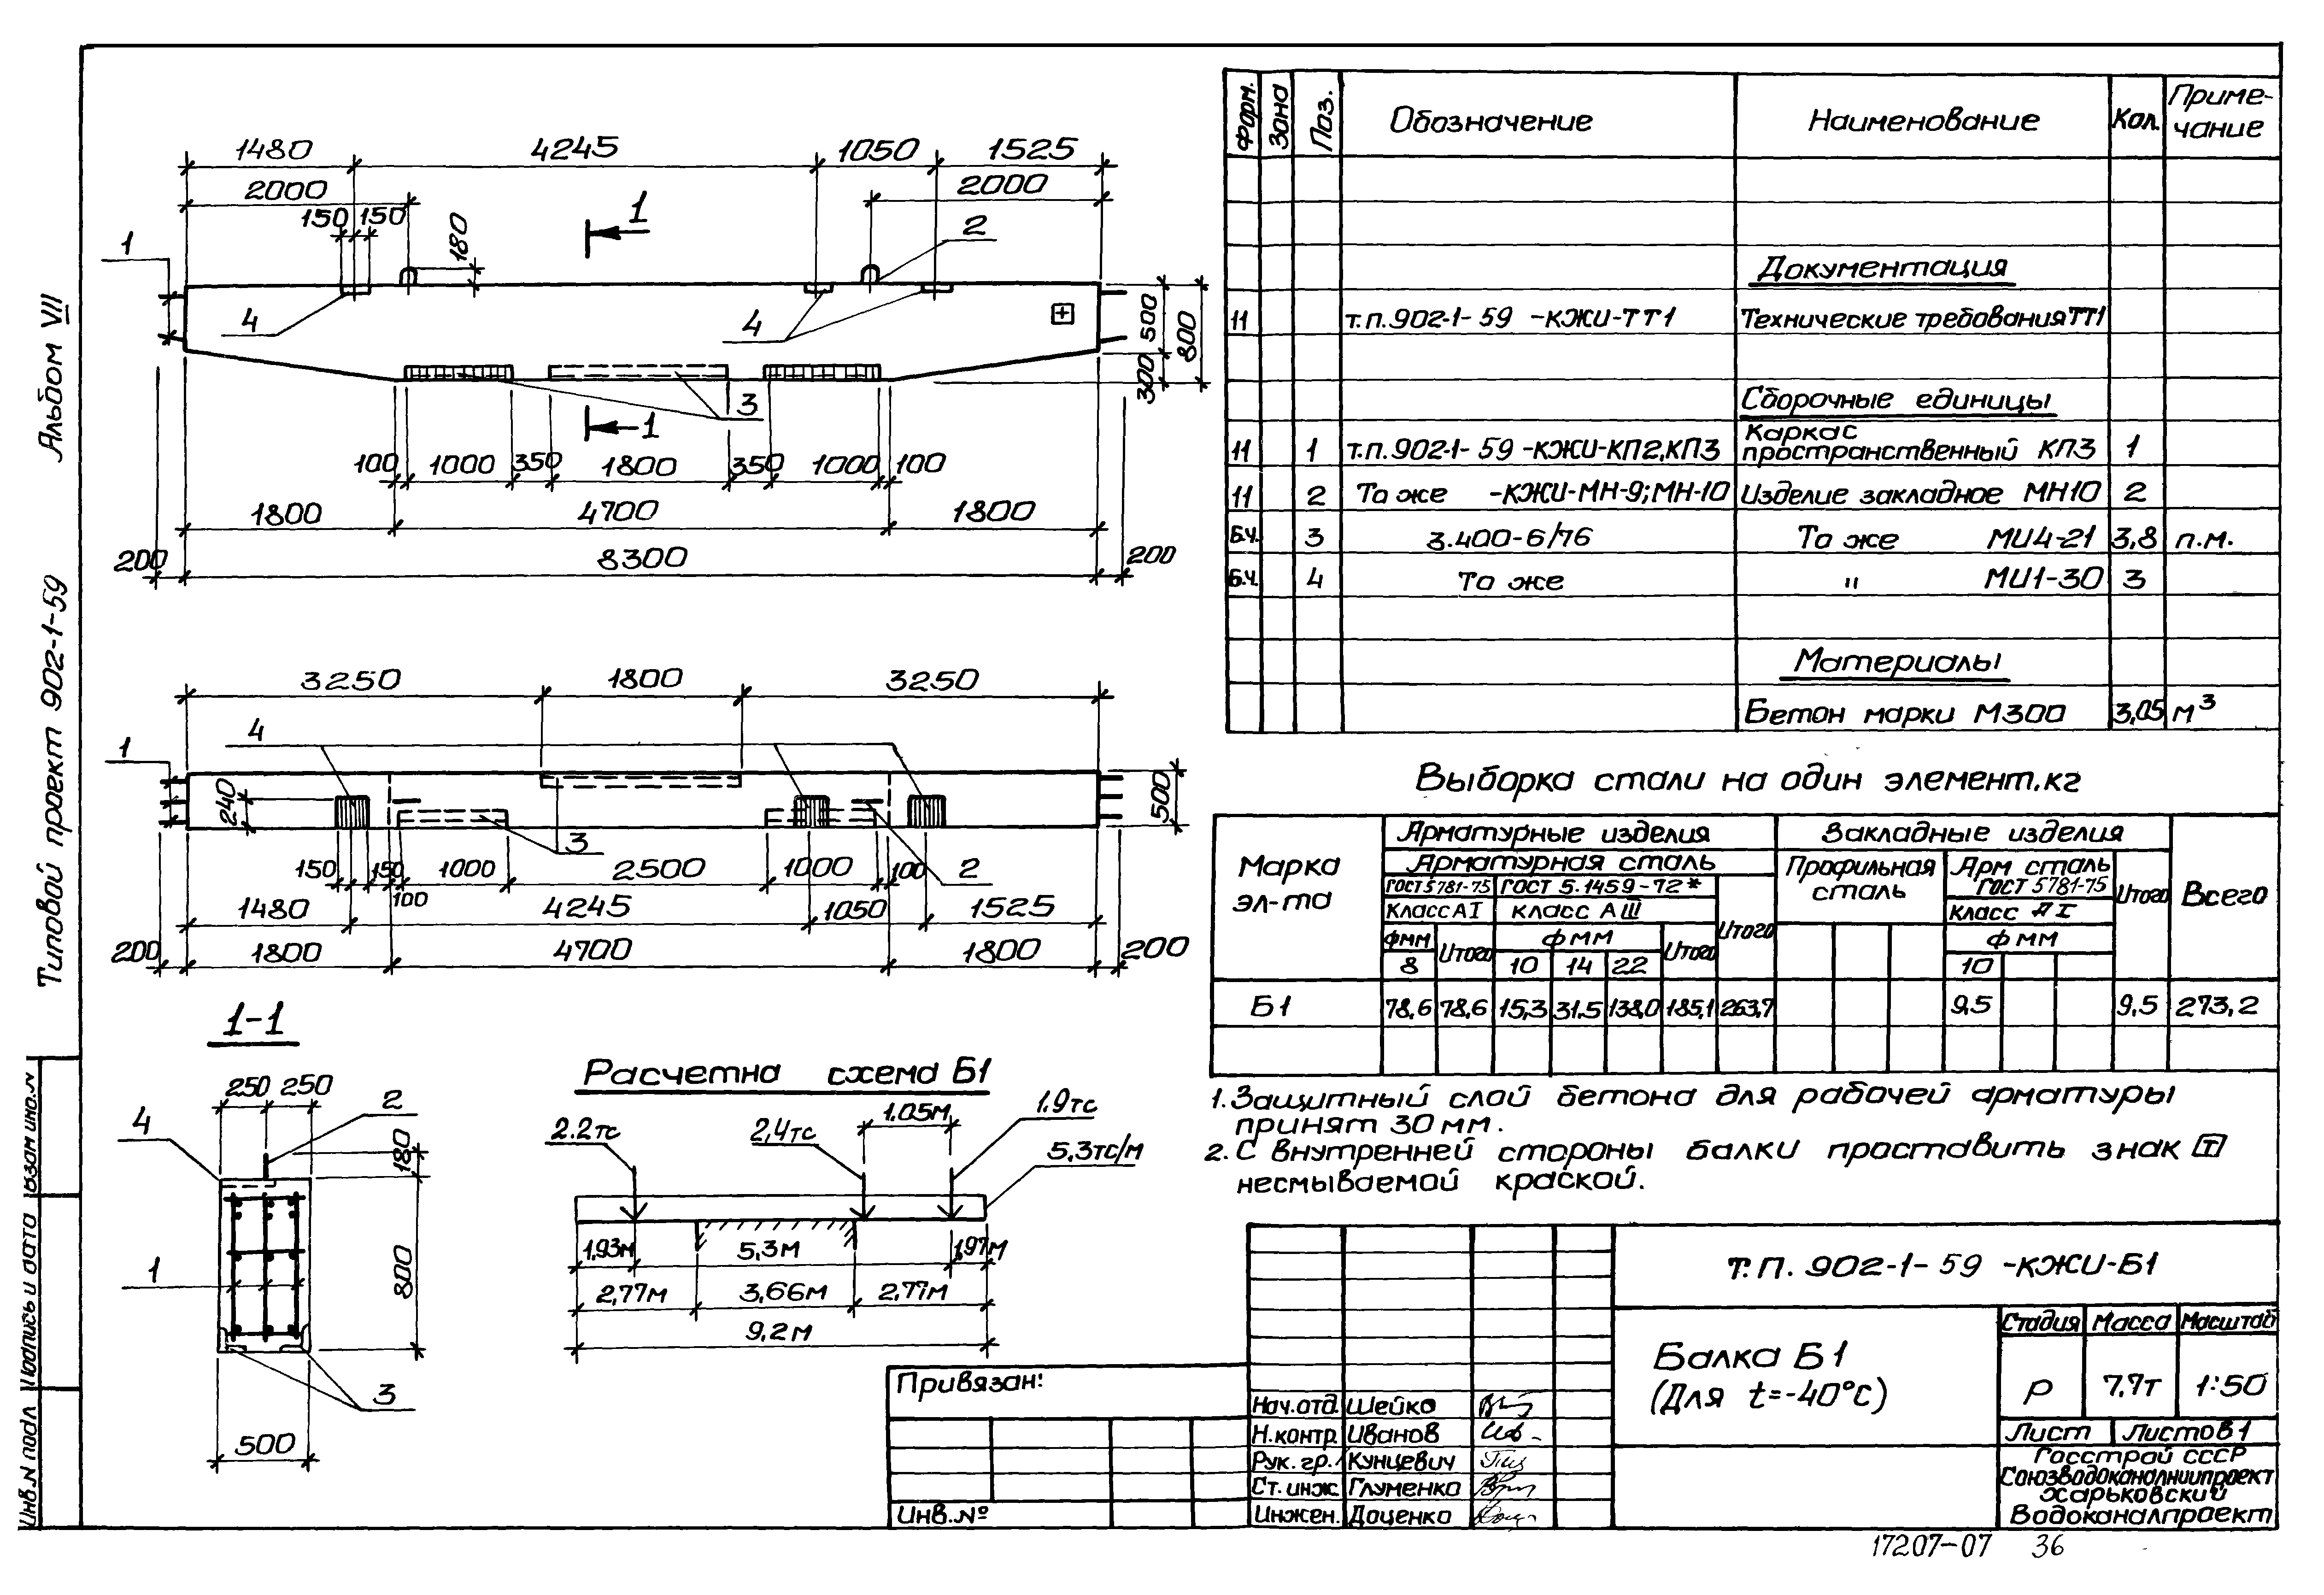 Альбом VII
Типовой проект 902-1-59
Инв.N подл
Подпись и дата
Взам инв.N
1480 4245 1050 1525
2000 2000
150 150
180
1
1
2
4
4
500
800
300
3
1
100 1000 350 1800 350 1000 100
1800 4700 1800
200 8300 200
3250 1800 3250
4
1
240
500
3
2
150 150 1000 2500 1000 100
100
1480 4245 1050 1525
200 1800 4700 1800 200
1-1
250 250
2
4
180
1
800
3
500
Расчетна схема Б1
2.2тс 2,4тс 1.05м 1.9тс
5,3тс/м
1,93м 5,3м 1,97м
2,77м 3,66м 2,77м
9,2м
Форм. Зона Поз. Обозначение Наименование Кол. Приме-
чание
Документация
11 т.п.902-1-59 -КЖИ-ТТ1 Технические требования ТТ1
Сборочные единицы
Каркас
11 1 т.п.902-1-59-КЖИ-КП2,КП3 пространственный КП3 1
11 2 То же -КЖИ-МН-9;МН-10 Изделие закладное МН10 2
Б.ч. 3 3.400-6/76 То же МИ4-21 3,8 п.м.
Б.ч. 4 То же " МИ1-30 3
Материалы
Бетон марки М300 3,05 м³
Выборка стали на один элемент.кг
Марка
эл-та
Арматурные изделия Закладные изделия
Арматурная сталь Профильная
сталь
Арм сталь
ГОСТ 5781-75 ГОСТ 5.1459-72* ГОСТ 5781-75
Класс АI класс АIII Класс АI
Итого Итого Всего
фмм Итого ф мм Итого ф мм
8 10 14 22 10
Б1 78,6 78,6 15,3 31.5 138,0 185,1 263,7 9,5 9,5 273,2
1. Защитный слой бетона для рабочей арматуры
принят 30 мм.
2. С внутренней стороны балки проставить знак Т
несмываемой краской.
Т.П. 902-1-59 -КЖИ-Б1
Балка Б1
(Для t=-40°С)
Стадия Масса Масштаб
Р 7,7т 1:50
Лист Листов 1
Госстрой СССР
Союзводоканалниипроект
Харьковский
Водоканалпроект
Привязан:
Инв.№
Нач.отд. Шейко
Н.контр. Иванов
Рук.гр. Кунцевич
Ст.инж. Глуменко
Инжен. Доценко
17207-07 36